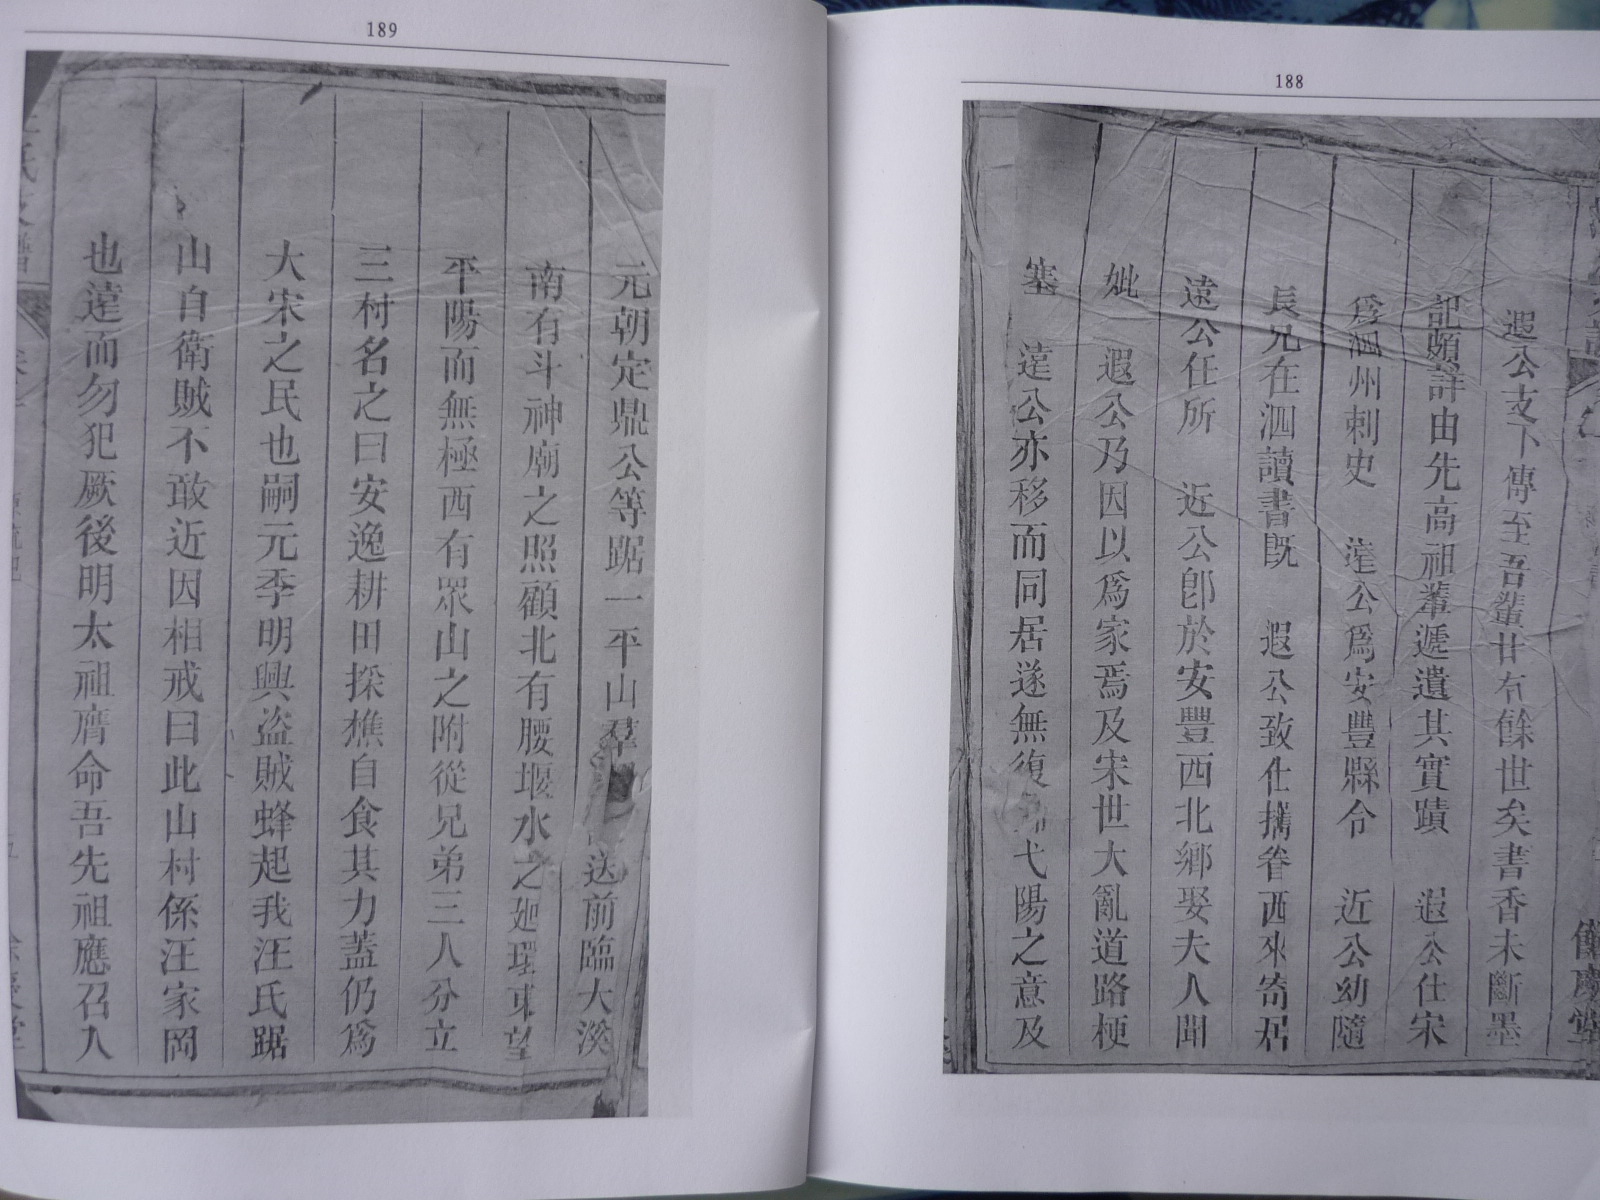 188
遐公支下傳至吾輩廿有餘世矣書香未斷墨
記頗詳由先高祖輩遞遺其實蹟　遐公仕宋
爲泗州刺史　達公爲安豐縣令　近公幼隨
長兄在泗讀書既　遐公致仕攜眷西來寄居
遠公任所　近公卽於安豐西北鄉娶夫人聞
妣　遐公乃因以爲家焉及宋世大亂道路梗
塞　達公亦移而同居遂無復弋陽之意及
189
元朝定鼎公等踞一平山羣送前臨大溪
南有斗神廟之照顧北有腰堰水之廻環東望
平陽而無極西有眾山之附從兄弟三人分立
三村名之曰安逸耕田採樵自食其力蓋仍爲
大宋之民也嗣元季明興盜賊蜂起我汪氏踞
山自衛賊不敢近因相戒曰此山村係汪家岡
也達而勿犯厥後明太祖膺命吾先祖應召入